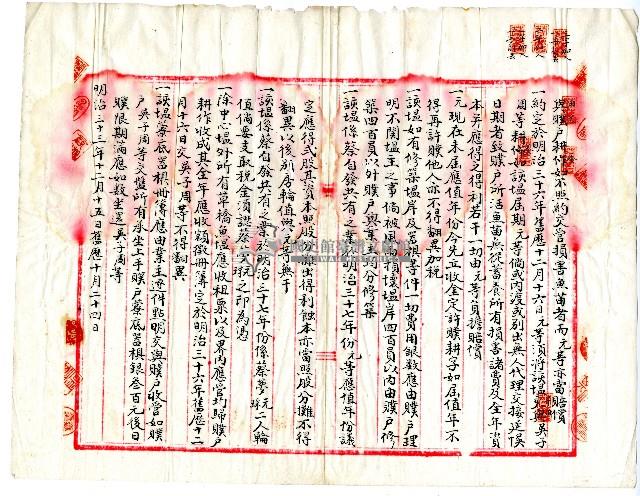 與贌戶耕作如不照約交當損害魚苗者而元等亦當賠償
一約定於明治三十六年舊曆十二月十六日元等須將該塭與吳子
周等耕作如該塭屆期元等倘或內渡或別出無人代理交接延悞
日期者致贌戶所活魚苗無從蓄養所有損害諸費及全年資
本并應得之得利若干一切由元等負擔賠償
一元現在未屆應值年份今先出收金定許贌耕字如屆值年不
得再許贌他人亦不得翻異加稅
一該塭如有修築塭岸及蓄棋等件一切費用銀數應由贌戶理
明不關塭主之事倘被風損壞塭岸四百員以內由贌戶修
築四百員以外贌戶與業主均分修築
一該塭係蔡自發共有之業明治三十七年份元等應值年份議
定應得式股其資本照股攤出得利蝕本亦當照股分攤不得
翻異以後別房輪值與元等無干
一該塭係蔡自發共有之業於明治三十七年份係蔡夢元二人輪
值倘要支取稅金須認蔡夢元之印為憑
一除中心塭外所有草橋魚塭應收租票以及界內應當均歸贌戶
耕作收成其全年應收額徵冊簿定於明治三十六年舊曆十二
月十六日交吳子周等不得翻異
一該塭寮底蓄棋冊簿應由業主逐件點明交與贌戶收管如贌
戶吳子周等交盤所有承坐上手贌戶寮底蓄棋銀叁百元後日
贌限期滿應如數坐還吳子周等
明治三十三年十二月十五日舊曆十月二十四日